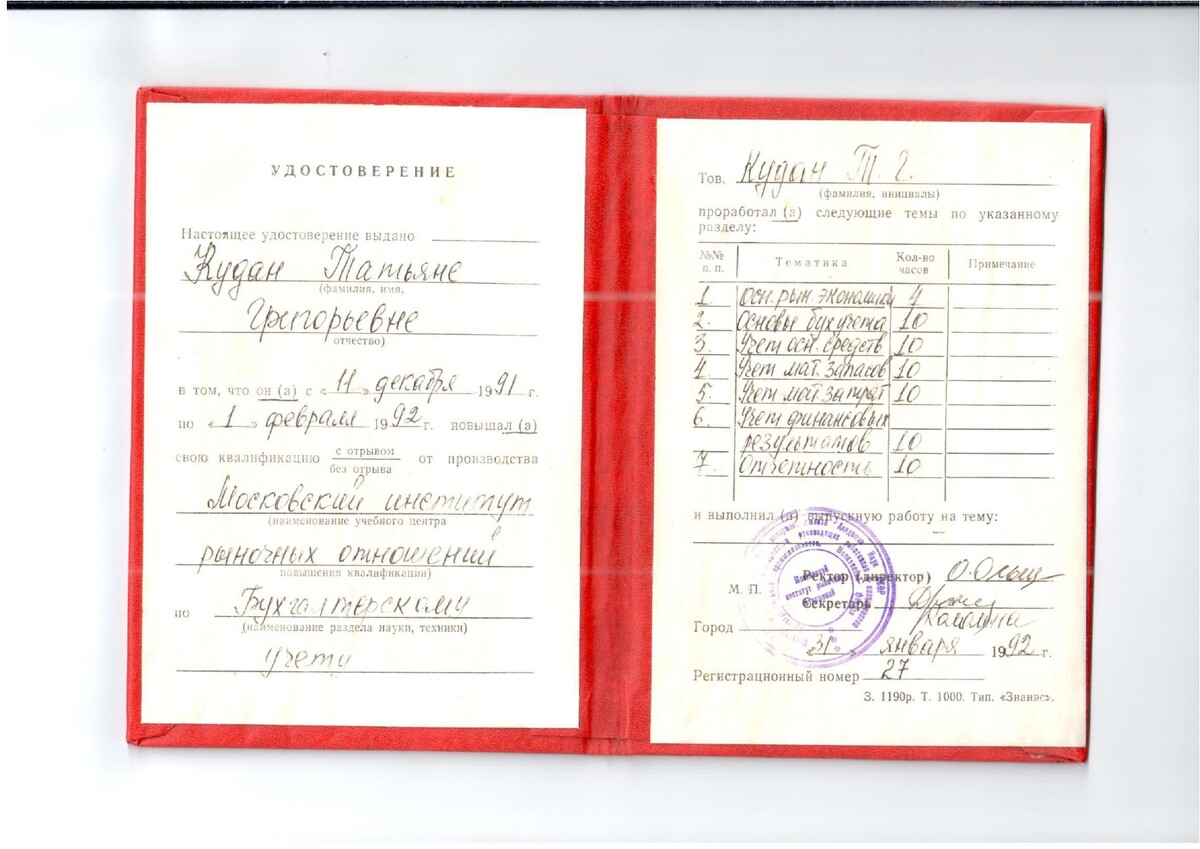 УДОСТОВЕРЕНИЕ
Настоящее удостоверение выдано
Кудан Татьяне
(фамилия, имя,
Григорьевне
отчество)
в том, что он (а) с «11» декабря 1991 г.
по «1» февраля 1992 г. повышал (а)
свою квалификацию с отрывом от производства
без отрыва
Московский институт
(наименование учебного центра
рыночных отношений
повышения квалификации)
по Бухгалтерскому
(наименование раздела науки, техники)
учету
Тов. Кудан Т. Г.
(фамилия, инициалы)
проработал (а) следующие темы по указанному
разделу:
№№ п. п. Тематика Кол-во часов Примечание
1 Осн. рын. экономики 4
2. Основы бухучета 10
3. Учет осн. средств 10
4. Учет мат. запасов 10
5. Учет мат. затрат 10
6. Учет финансовых
результатов 10
7. Отчетность 10
и выполнил (а) выпускную работу на тему:
М. П.
Ректор (директор)
Секретарь
Город
Коломна
«31» января 1992 г.
Регистрационный номер 27
З. 1190р. Т. 1000. Тип. «Знание».